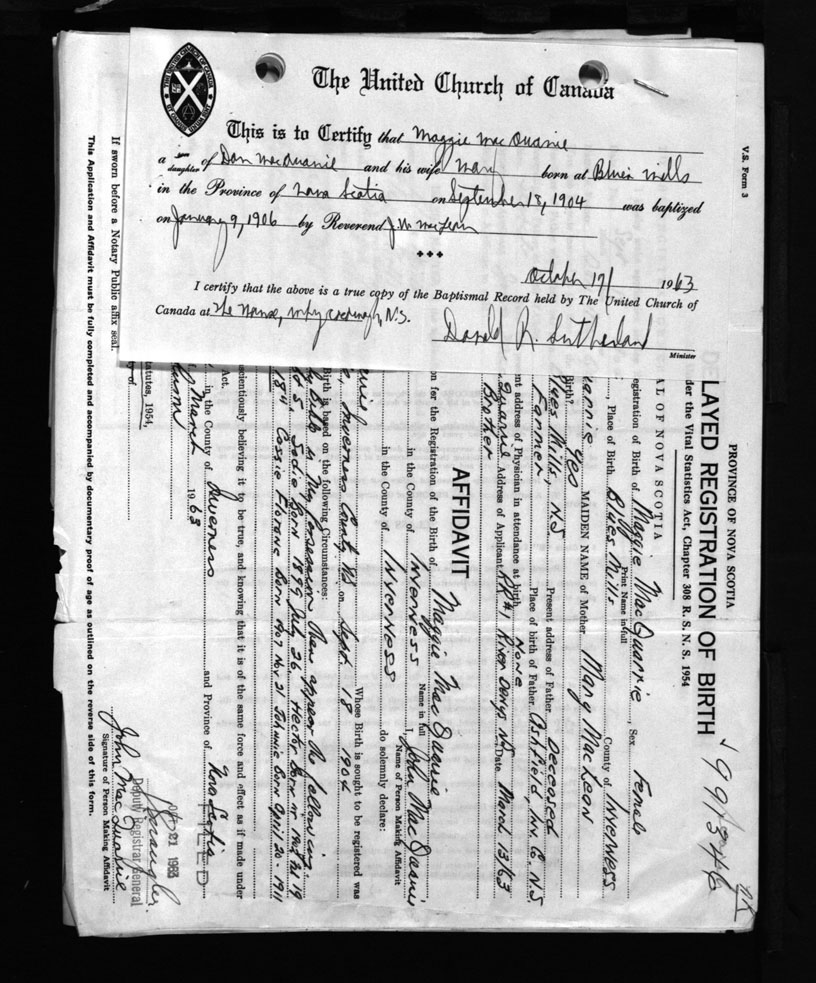 The United Church of Canada
This is to Certify that Maggie Mac Quarrie
a daughter of Dan MacQuarrie and his wife Mary born at Blues Mills
in the Province of Nova Scotia on September 18, 1904 was baptized
on January 9, 1906 by Reverend J.W. MacLean
I certify that the above is a true copy of the Baptismal Record held by The United Church of
October 17/ 1963
Canada at The Manse, Whycocomagh, N.S.
Donald R. Sutherland
Minister
V.S. Form 3
PROVINCE OF NOVA SCOTIA
LAYED REGISTRATION OF BIRTH
der the Vital Statistics Act, Chapter 308 R. S. N. S. 1954
991346
AL OF NOVA SCOTIA
egistration of Birth of Maggie Mac Quarrie, Sex Female
Print Name in full
, Place of Birth Blues Mills County of Inverness
MAIDEN NAME of Mother Mary MacLeon
Birth? Yes
Blues Mills, N.S Present address of Father Deceased
Farmer Place of birth of Father Ashfield, Inv. Co. N.S
nt address of Physician in attendance at birth None
Quarrie Address of Applicant RR#1 River Denys NS Date March 13/63
Brother
AFFIDAVIT
on for the Registration of the Birth of Maggie Mac Quarrie
Name in full
in the County of Inverness I, John MacQuarrie
Name of Person Making Affidavit
in the County of Inverness do solemnly declare:
Whose Birth is sought to be registered was
Inverness County NS on Sept 18 1904
Birth is based on the following Circumstances:
Bible in My possession there appear the following.
Sadie Born 1899 July 26. Hector Born
Cassie Florence Born 1907 Nov 21 Johnnie Born April 20 - 1911
scientiously believing it to be true, and knowing that it is of the same force and effect as if made under
Act.
, in the County of Inverness and Province of Nova Scotia
March 1963
tatutes, 1954,
y of
OCT 21 1963
Deputy Registrar General
John MacQuarrie
Signature of Person Making Affidavit
If sworn before a Notary Public affix seal.
This Application and Affidavit must be fully completed and accompanied by documentary proof of age as outlined on the reverse side of this form.